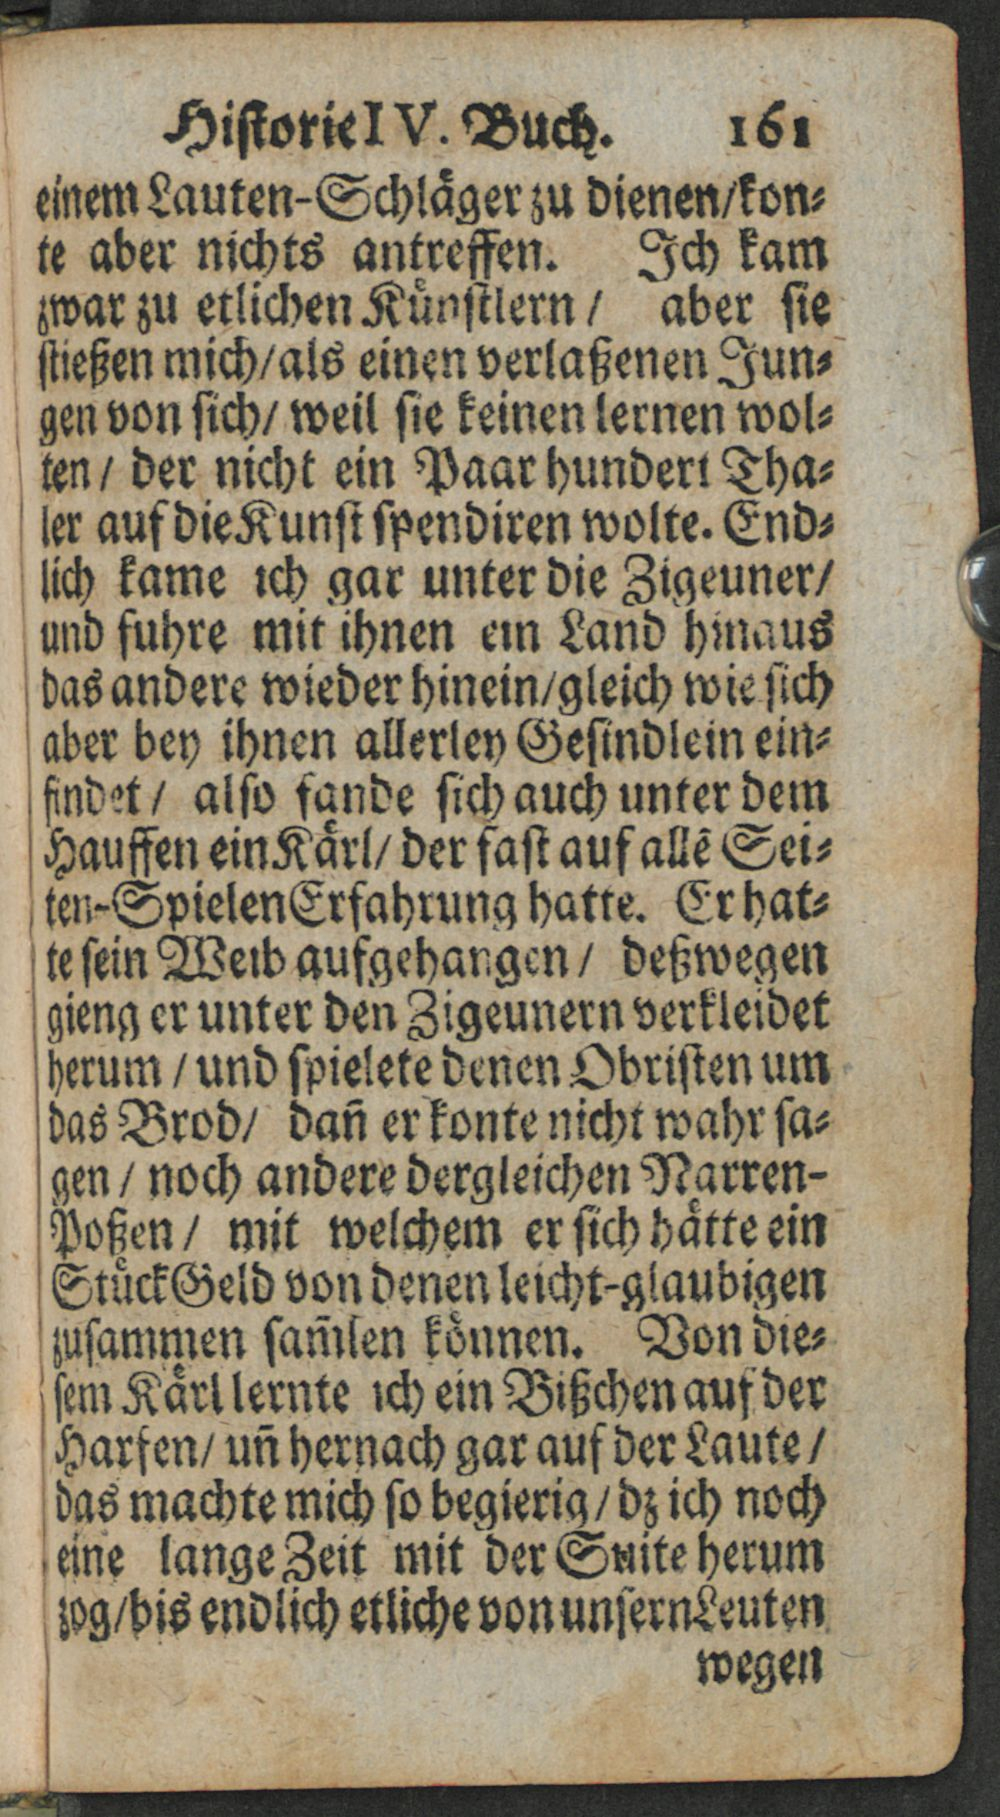 Historie IV. Buch. 161
einem Lauten-Schläger zu dienen/kon-
te aber nichts antreffen. Ich kam
zwar zu etlichen Künstlern / aber sie
stießen mich/als einen verlaßenen Jun-
gen von sich/ weil sie keinen lernen wol-
ten / der nicht ein Paar hundert Tha-
ler auf die Kunst spendiren wolte. End-
lich kame ich gar unter die Zigeuner/
und fuhre mit ihnen ein Land hinaus
das andere wieder hinein/gleich wie sich
aber bey ihnen allerley Gesindlein ein-
findet / also fande sich auch unter dem
Hauffen ein Kärl/ der fast auf allē Sei-
ten-Spielen Erfahrung hatte. Er hat-
te sein Weib aufgehangen / deßwegen
gieng er unter den Zigeunern verkleidet
herum / und spielete denen Obristen um
das Brod/ dañ er konte nicht wahr sa-
gen / noch andere dergleichen Narren-
Poßen / mit welchem er sich hätte ein
Stück Geld von denen leicht-glaubigen
zusammen sam̃len können. Von die-
sem Kärl lernte ich ein Bißchen auf der
Harfen/ uñ hernach gar auf der Laute /
das machte mich so begierig / dz ich noch
eine lange Zeit mit der Suite herum
zog/bis endlich etliche von unsern Leuten
wegen